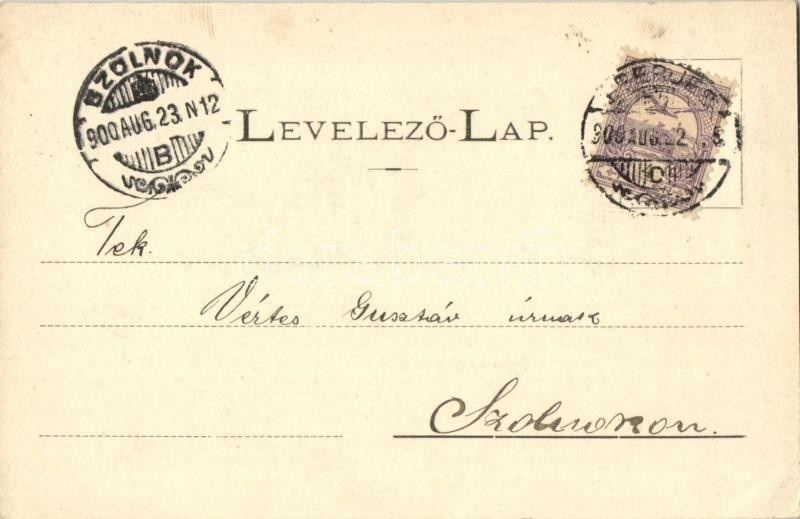 SZOLNOK
900 AUG. 23. N 12
B
EPERJES
900 AUG. 22
C
LEVELEZŐ-LAP.
Tek.
Vértes Gusztáv úrnak
Szolnokon.